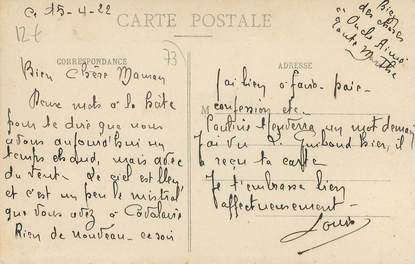 C, 15-4-22
CARTE POSTALE
127
73
Bien
des choses
Oncle Aimé
Tante Marthe
CORRESPONDANCE
ADRESSE
Bien Chère Maman
Deux mots à la hâte
pour te dire que nous
avons aujourd'hui un
temps chaud, mais avec
du vent. Le ciel est bleu
et c'est un peu le mistral
que vous avez à Cavalaire
Rien de nouveau - ce soir
j'ai bien à faire - 
confession etc.
M
un mot demain
J'ai vu hier, il
a reçu ta carte
Je t'embrasse bien
affectueusement -
Louis